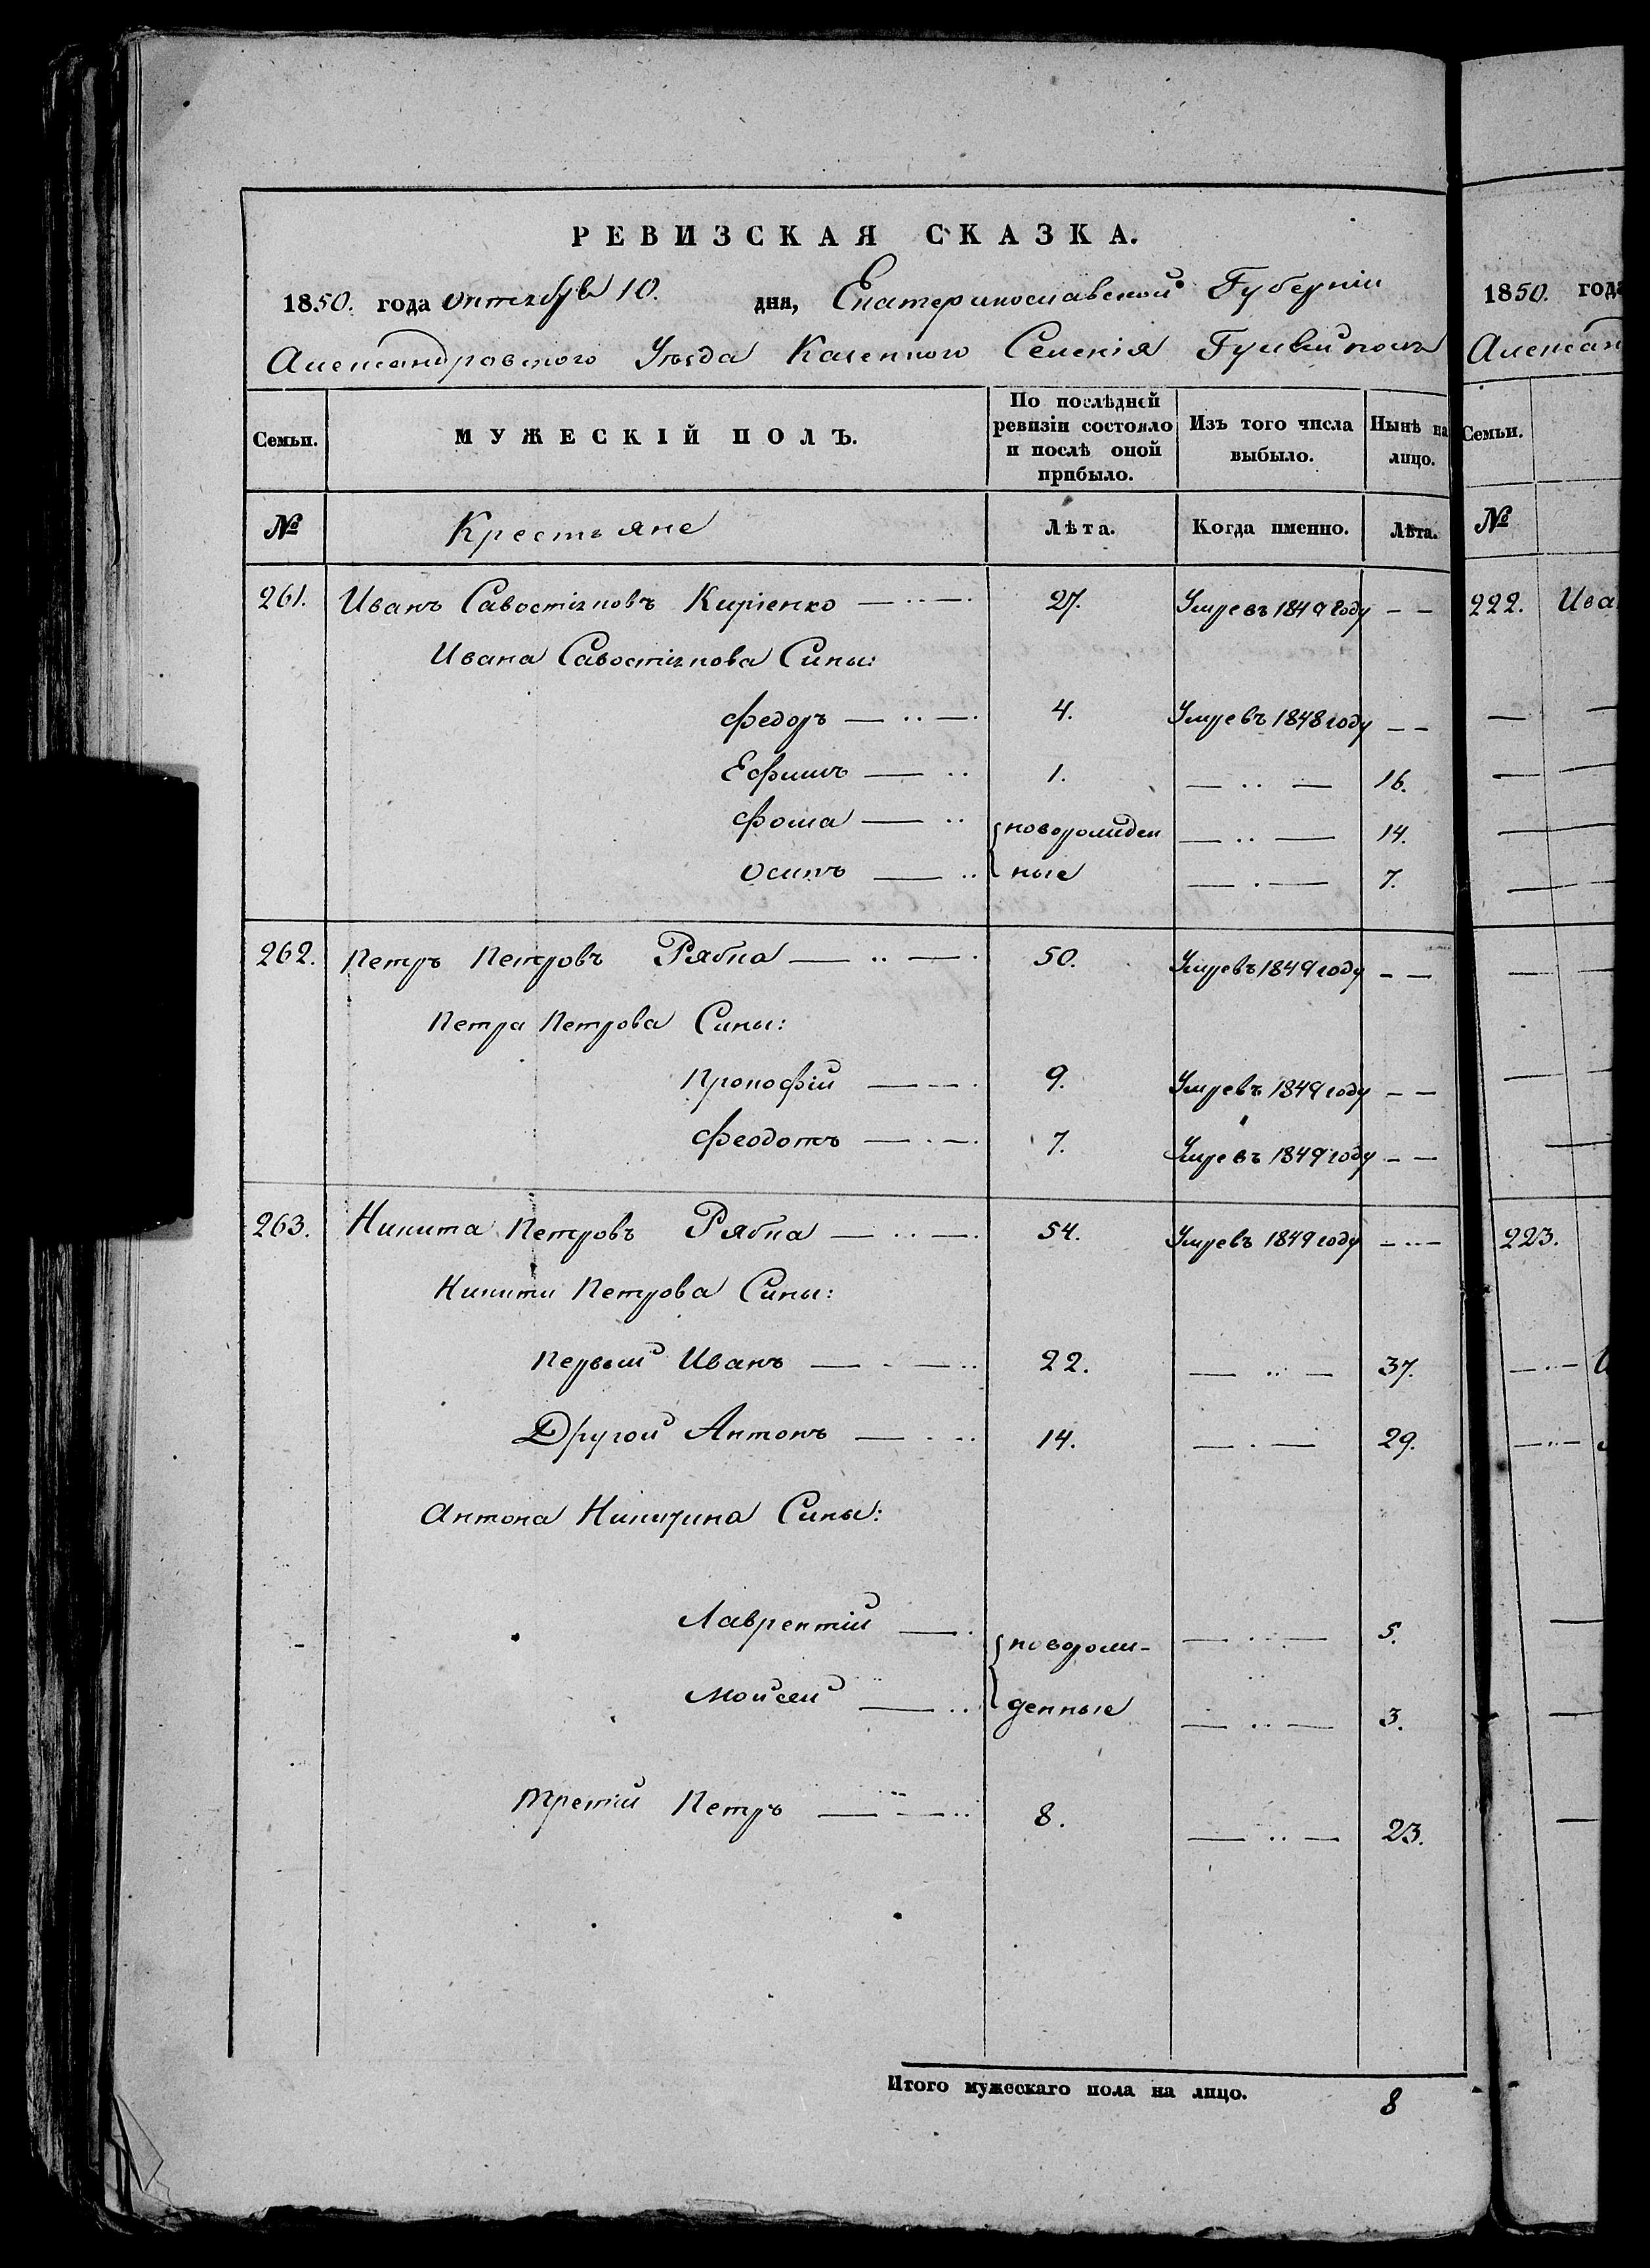 РЕВИЗСКАЯ СКАЗКА.
1850. года Октября 10. дня, Екатеринославской Губерніи
Александровского Уѣзда Казенного Селенія Гуляйполя
Семьи. МУЖЕСКІЙ ПОЛЪ. По послѣдней ревизіи состояло и послѣ оной прибыло. Изъ того числа выбыло. Нынѣ на лицо.
№ Крестьяне Лѣта. Когда именно. Лѣта.
261. Иванъ Савостіяновъ Киріенко — ·· — · 27. Умре въ 1849 году — —
Ивана Савостіянова Сины:
Федоръ — ·· — · 4. Умре въ 1848 году — —
Ефимъ — ·· 1. — ·· — 16.
Фома — ·· новорожден — ·· — 14.
Осипъ — ·· ные — · — 7.
262. Петръ Петровъ Рябка — ·· — · 50. Умре въ 1849 году — —
Петра Петрова Сины:
Прокофій — – — · 9. Умре въ 1849 году — —
Феодотъ — · — · 7. Умре въ 1849 году — —
263. Никита Петровъ Рябка — ·· — · 54. Умре въ 1849 году — ·· —
Никити Петрова Сины:
Первый Иванъ — · — ·· 22. — ·· — 37.
Другой Антонъ — · — ·· 14. — · — 29.
Антона Никитина Сины:
Лаврентій — · новорож- — ·· — 5.
Моисей — ·· денные — ·· — 3.
Третій Петръ — ·· — ·· 8. — ·· — 23.
Итого мужескаго пола на лицо. 8
1850. года
Александ
Семьи.
№
222. Ива
223.